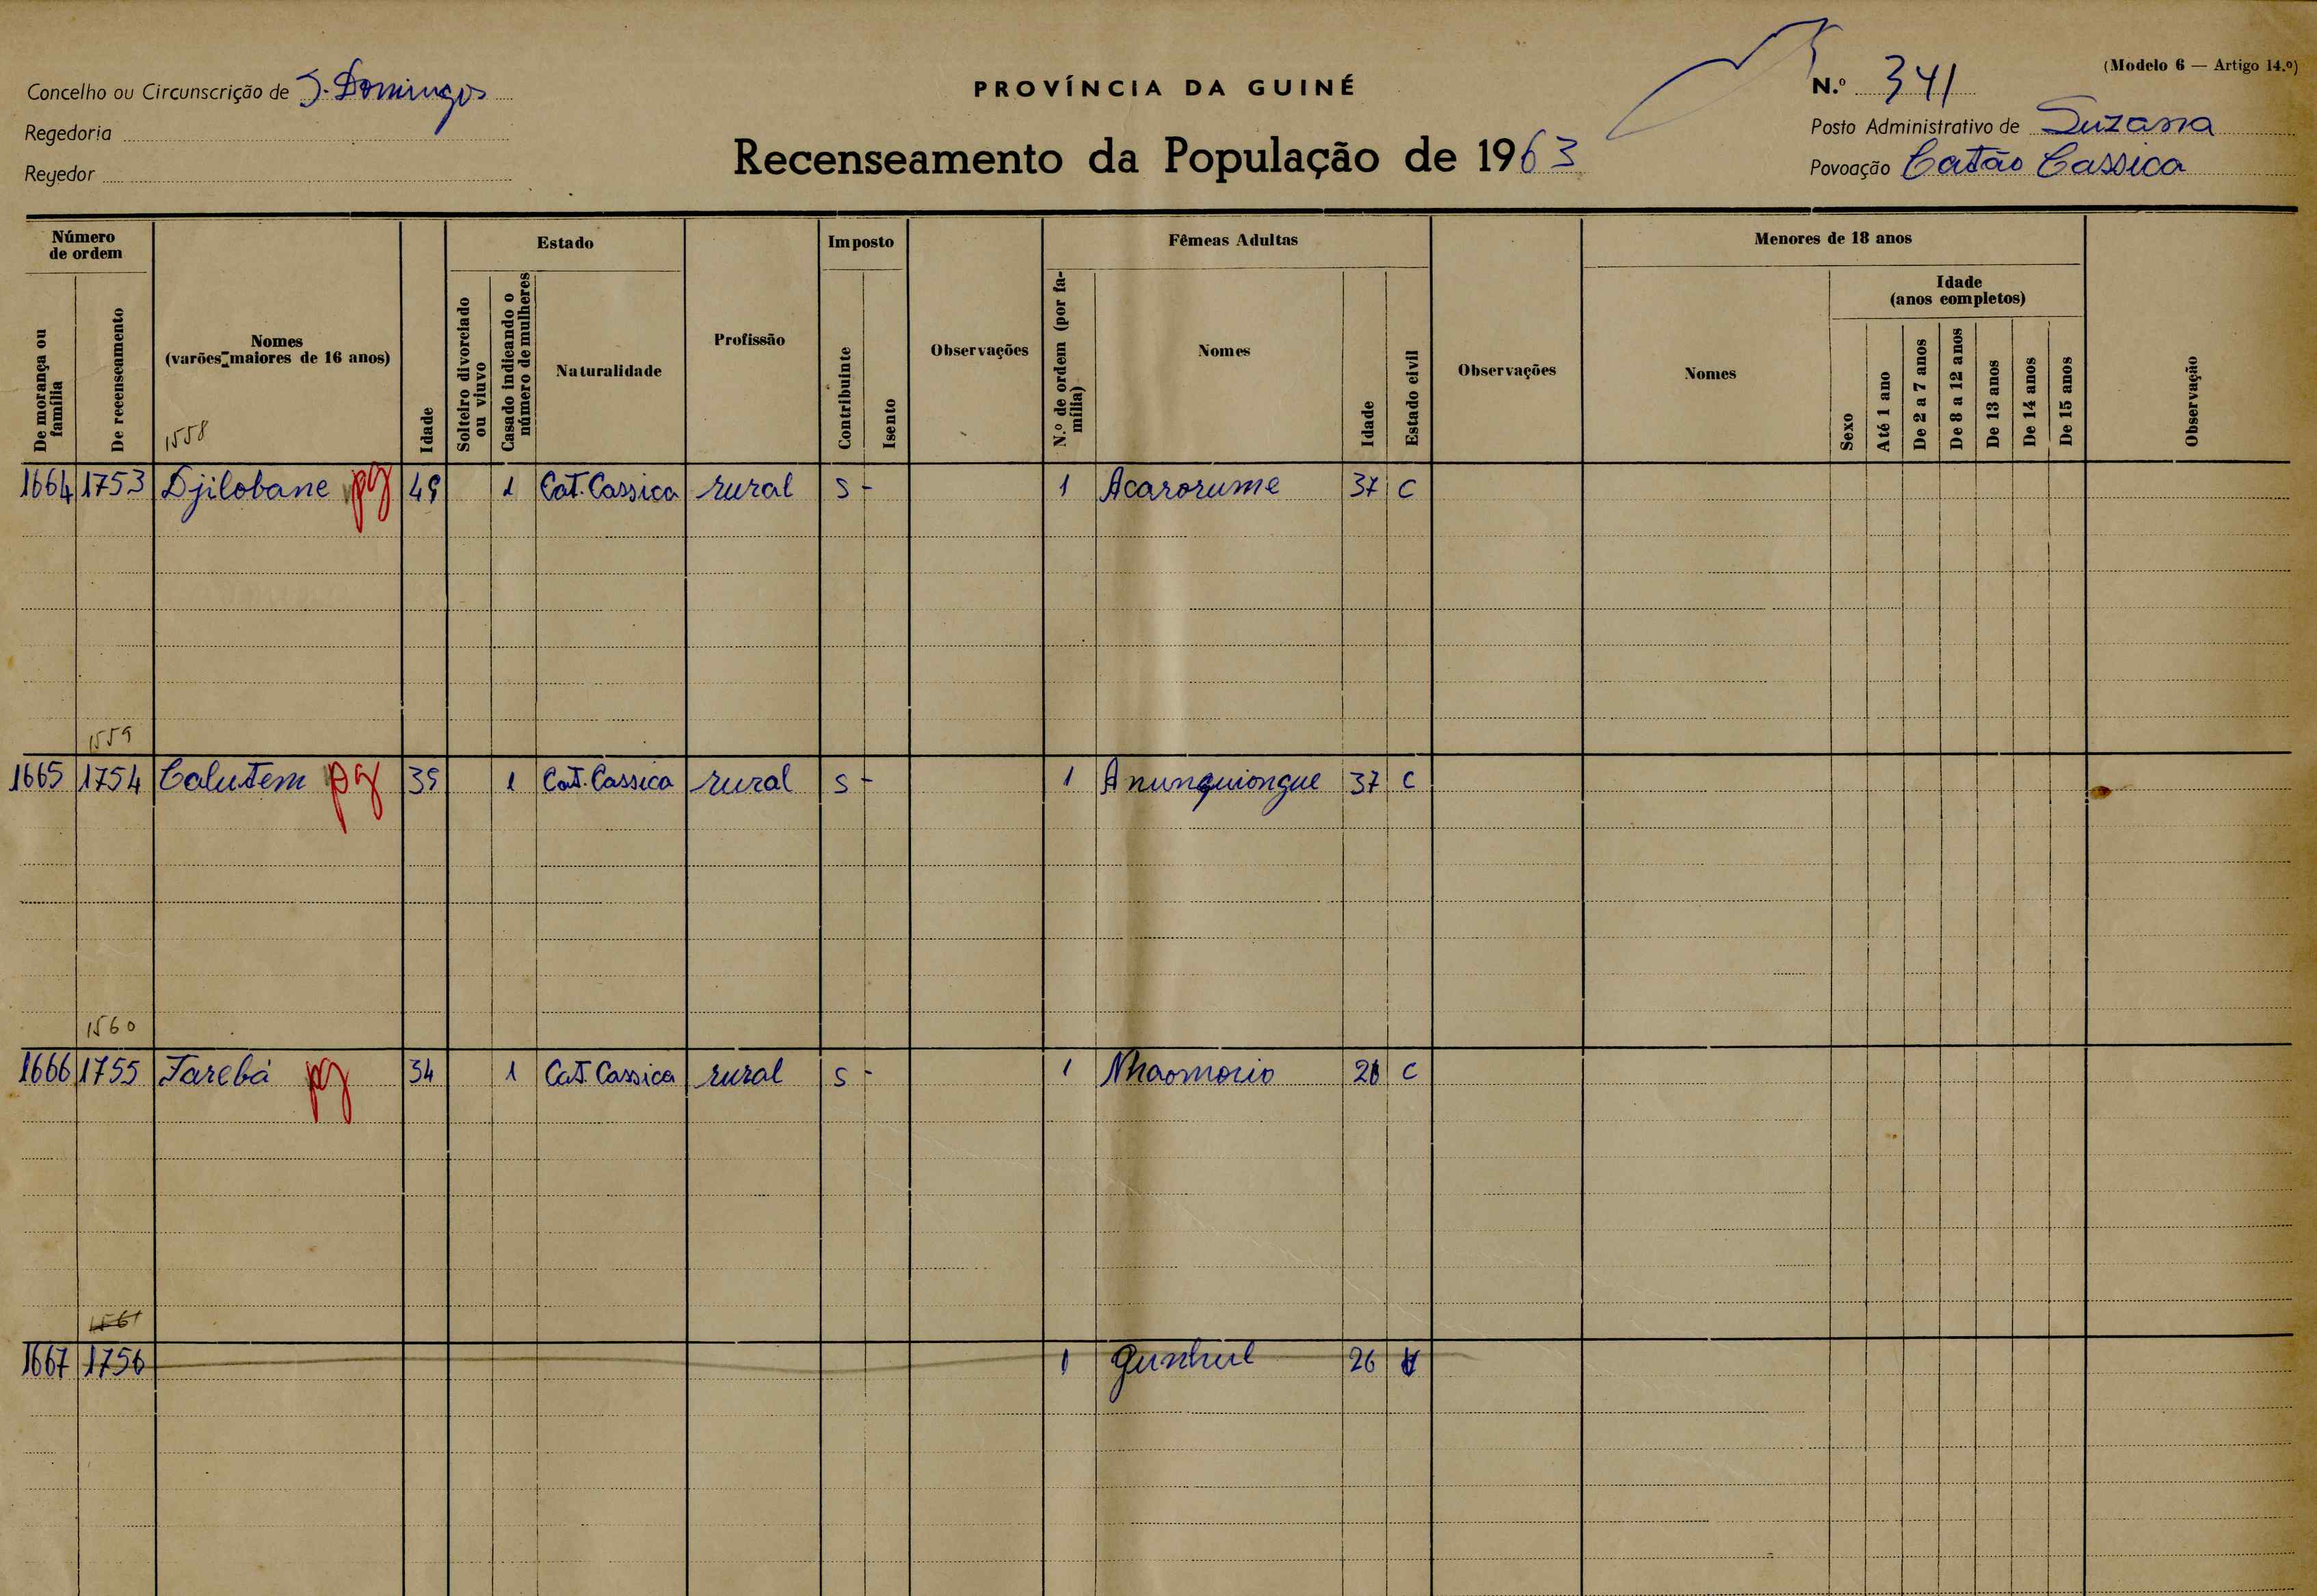 (Modelo 6 — Artigo 14.º)
Concelho ou Circunscrição de S. Domingos
PROVÍNCIA DA GUINÉ
N.º 341
Regedoria
Posto Administrativo de Suzana
Regedor
Recenseamento da População de 1963
Povoação Catão Cassica
Número de ordem
Estado
Imposto
Fêmeas Adultas
Menores de 18 anos
De morança ou família
De recenseamento
Nomes
(varões maiores de 16 anos)
Idade
Solteiro divorciado ou viuvo
Casado indicando o número de mulheres
Naturalidade
Profissão
Contribuinte
Isento
Observações
N.º de ordem (por família)
Nomes
Idade
Estado civil
Observações
Nomes
Sexo
Idade
(anos completos)
Até 1 ano
De 2 a 7 anos
De 8 a 12 anos
De 13 anos
De 14 anos
De 15 anos
Observação
1558
1664 1753 Djilobane pg 49 1 Cat. Cassica rural S - 1 Acarorume 37 C
1559
1665 1754 Calutem pg 39 1 Cat. Cassica rural S - 1 Anunquiongue 37 C
1560
1666 1755 Tarebá pg 34 1 Cat. Cassica rural S - 1 Nhaomorio 28 C
1561
1667 1756 1 Gunhul 26 V